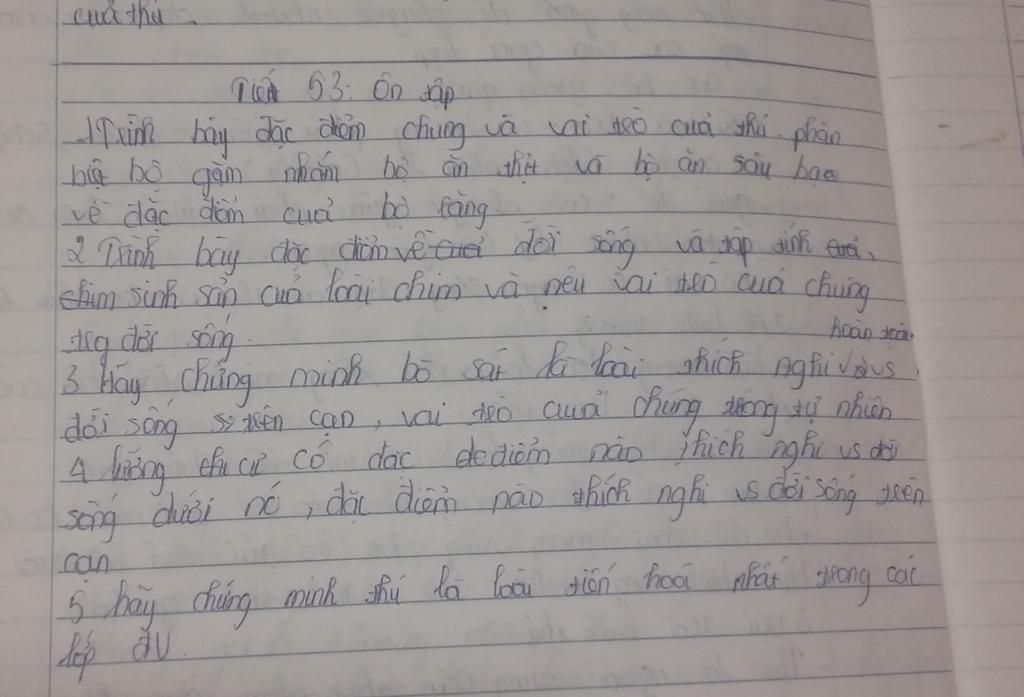 cuả thú.
Tiết 53: Ôn tập
1 Trình bày đặc điểm chung và vai trò cuả thú phân
biệt bộ gặm nhấm bộ ăn thịt và bộ ăn sâu bọ
về đặc điểm cuả bộ răng
2 Trình bày đặc điểm về đời sống và tập tính
sinh sản cuả loài chim và nêu vai trò cuả chúng
trg đời sống.
hoàn toàn
3 Hãy chứng minh bò sát là loài thích nghi vs
đời sống trên cạn, vai trò cuả chúng trong tự nhiên
4 lưỡng cư có đặc điểm nào thích nghi vs đời
sống dưới nó, đặc điểm nào thích nghi vs đời sống trên
cạn
5 hãy chứng minh thú là loài tiến hoá nhất trong các
lớp ĐV.